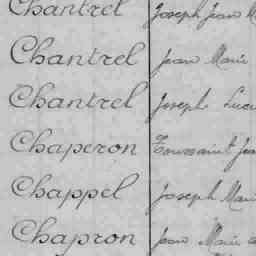 Chantrel Joseph Jean
Chantrel Jean Marie
Chantrel Joseph
Chaperon Toussaint
Chappel Joseph Marie
Chapron Jean Marie